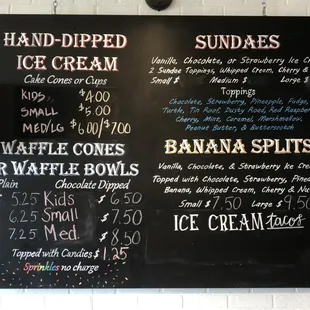 HAND-DIPPED
ICE CREAM
Cake Cones or Cups
KIDS $4.00
SMALL $5.00
MED/LG $6.00/$7.00
WAFFLE CONES
R WAFFLE BOWLS
Plain Chocolate Dipped
5.25 Kids $6.50
6.25 Small $7.50
7.25 Med $8.50
Topped with Candies $1.25
Sprinkles no charge
SUNDAES
Vanilla, Chocolate, or Strawberry Ice C
2 Sundae Toppings, Whipped Cream, Cherry &
Small $ Medium $ Large $
Toppings
Chocolate, Strawberry, Pineapple, Fudge,
Turtle, Tin Roof, Dusty Road, Red Raspber
Cherry, Mint, Caramel, Marshmallow,
Peanut Butter, & Butterscotch
BANANA SPLITS
Vanilla, Chocolate, & Strawberry Ice Crea
Topped with Chocolate, Strawberry, Pinea
Banana, Whipped Cream, Cherry & Nu
Small $7.50 Large $9.50
ICE CREAM tacos